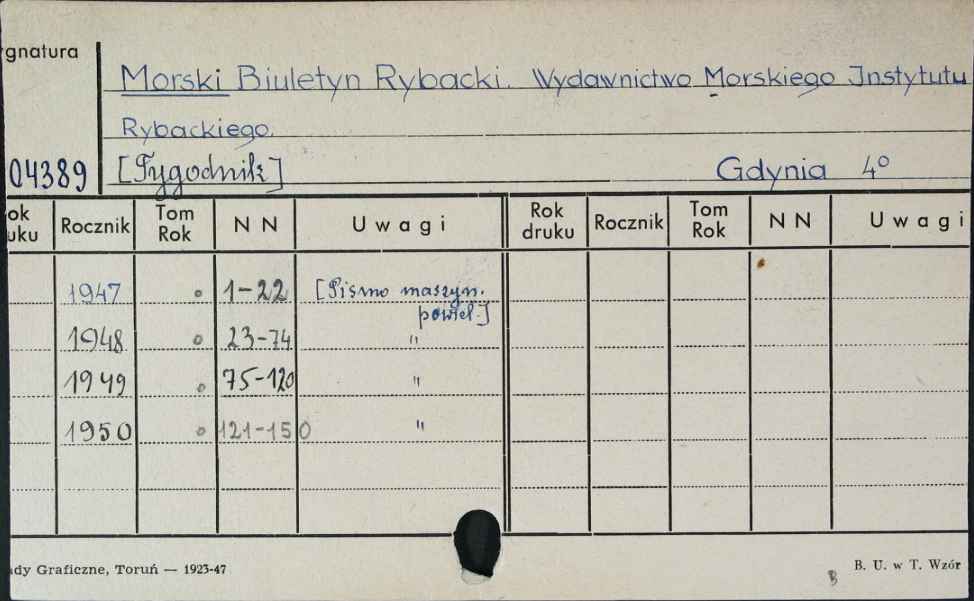 ygnatura
Morski Biuletyn Rybacki. Wydawnictwo Morskiego Instytutu
Rybackiego.
04389 [Tygodnik] Gdynia 4°
ok uku Rocznik Tom Rok N N Uwagi Rok druku Rocznik Tom Rok N N Uwagi
1947 ° 1-22 [Pismo maszyn.
powiel.]
1948 ° 23-74 "
1949 ° 75-120 "
1950 ° 121-150 "
dy Graficzne, Toruń — 1923-47 B. U. w T. Wzór